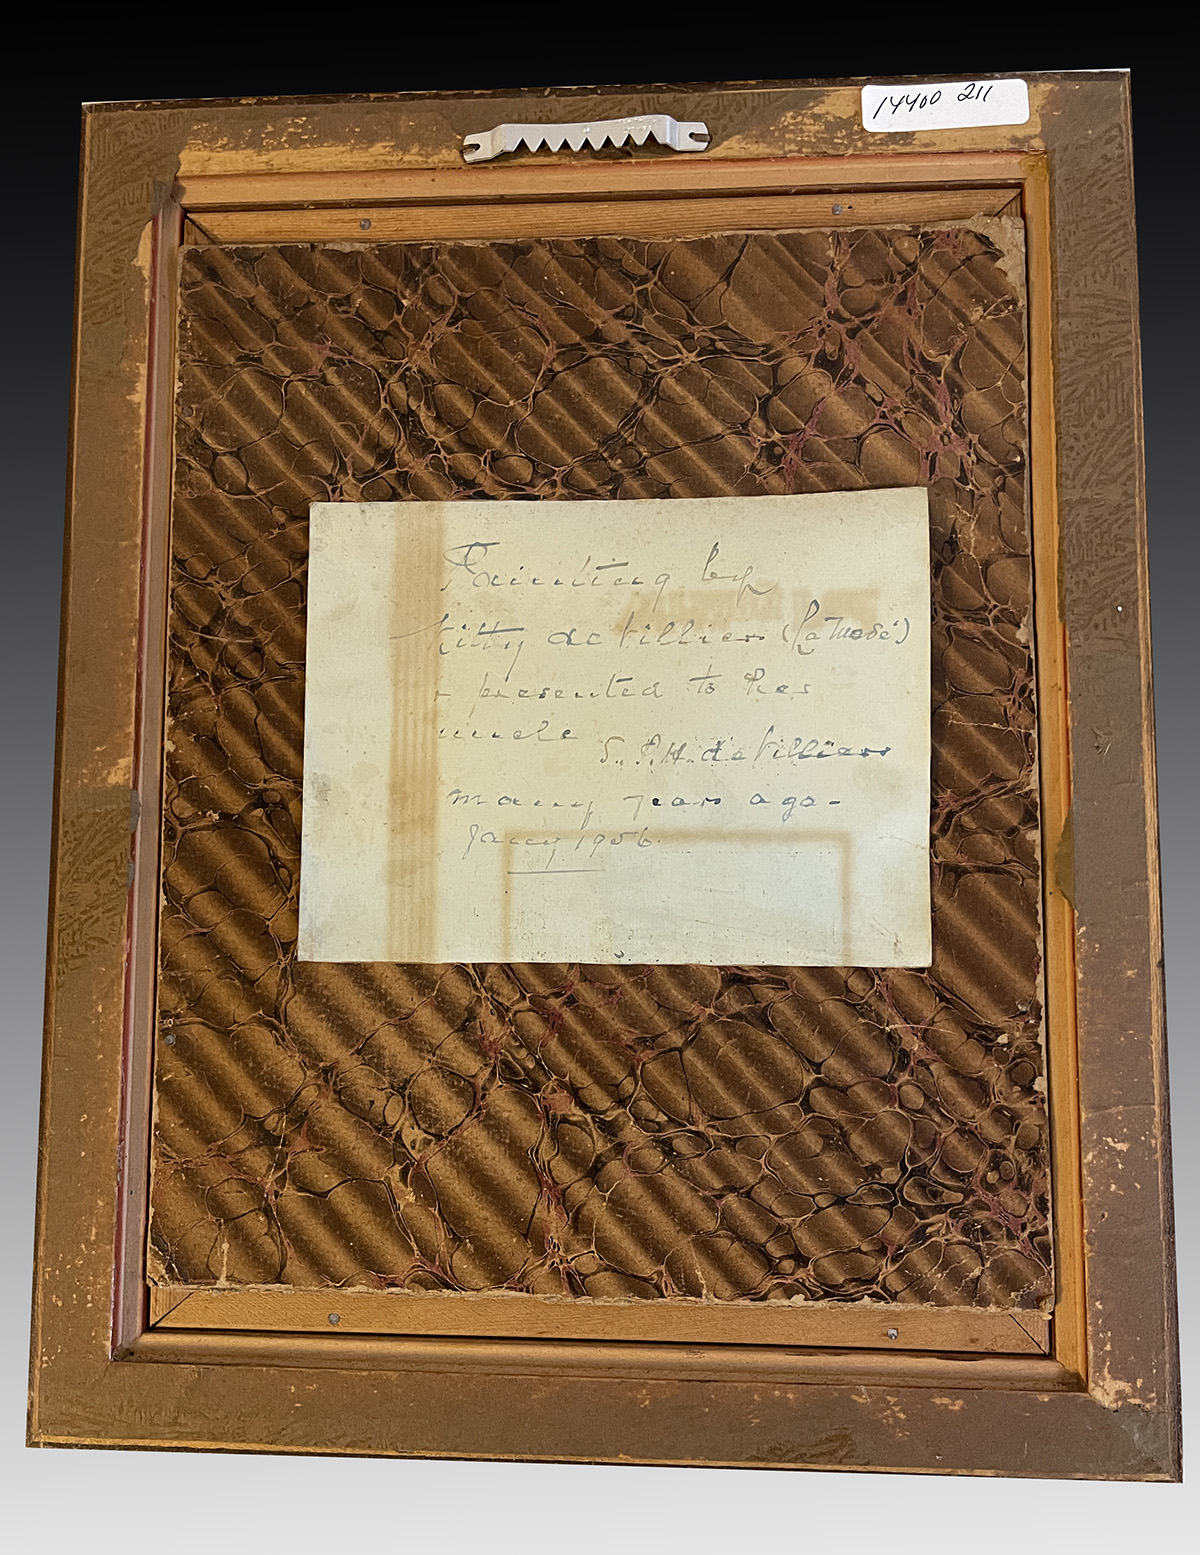 14400 211
Painting by
Kitty de Villiers (La Tuosé)
& presented to her
uncle
S. P. H. de Villiers
many years ago -
Jany 1906